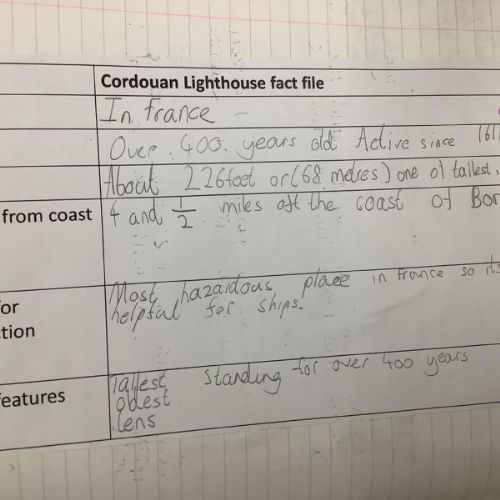 Cordouan Lighthouse fact file
In france
Over 400 years old Active since 1611
About 226feet or (68 metres) one of tallest
from coast 4 and 1/2 miles off the coast of Bor
Most hazardous place in france so its
or helpful for ships.
tion
features Tallest standing for over 400 years
oldest
lens